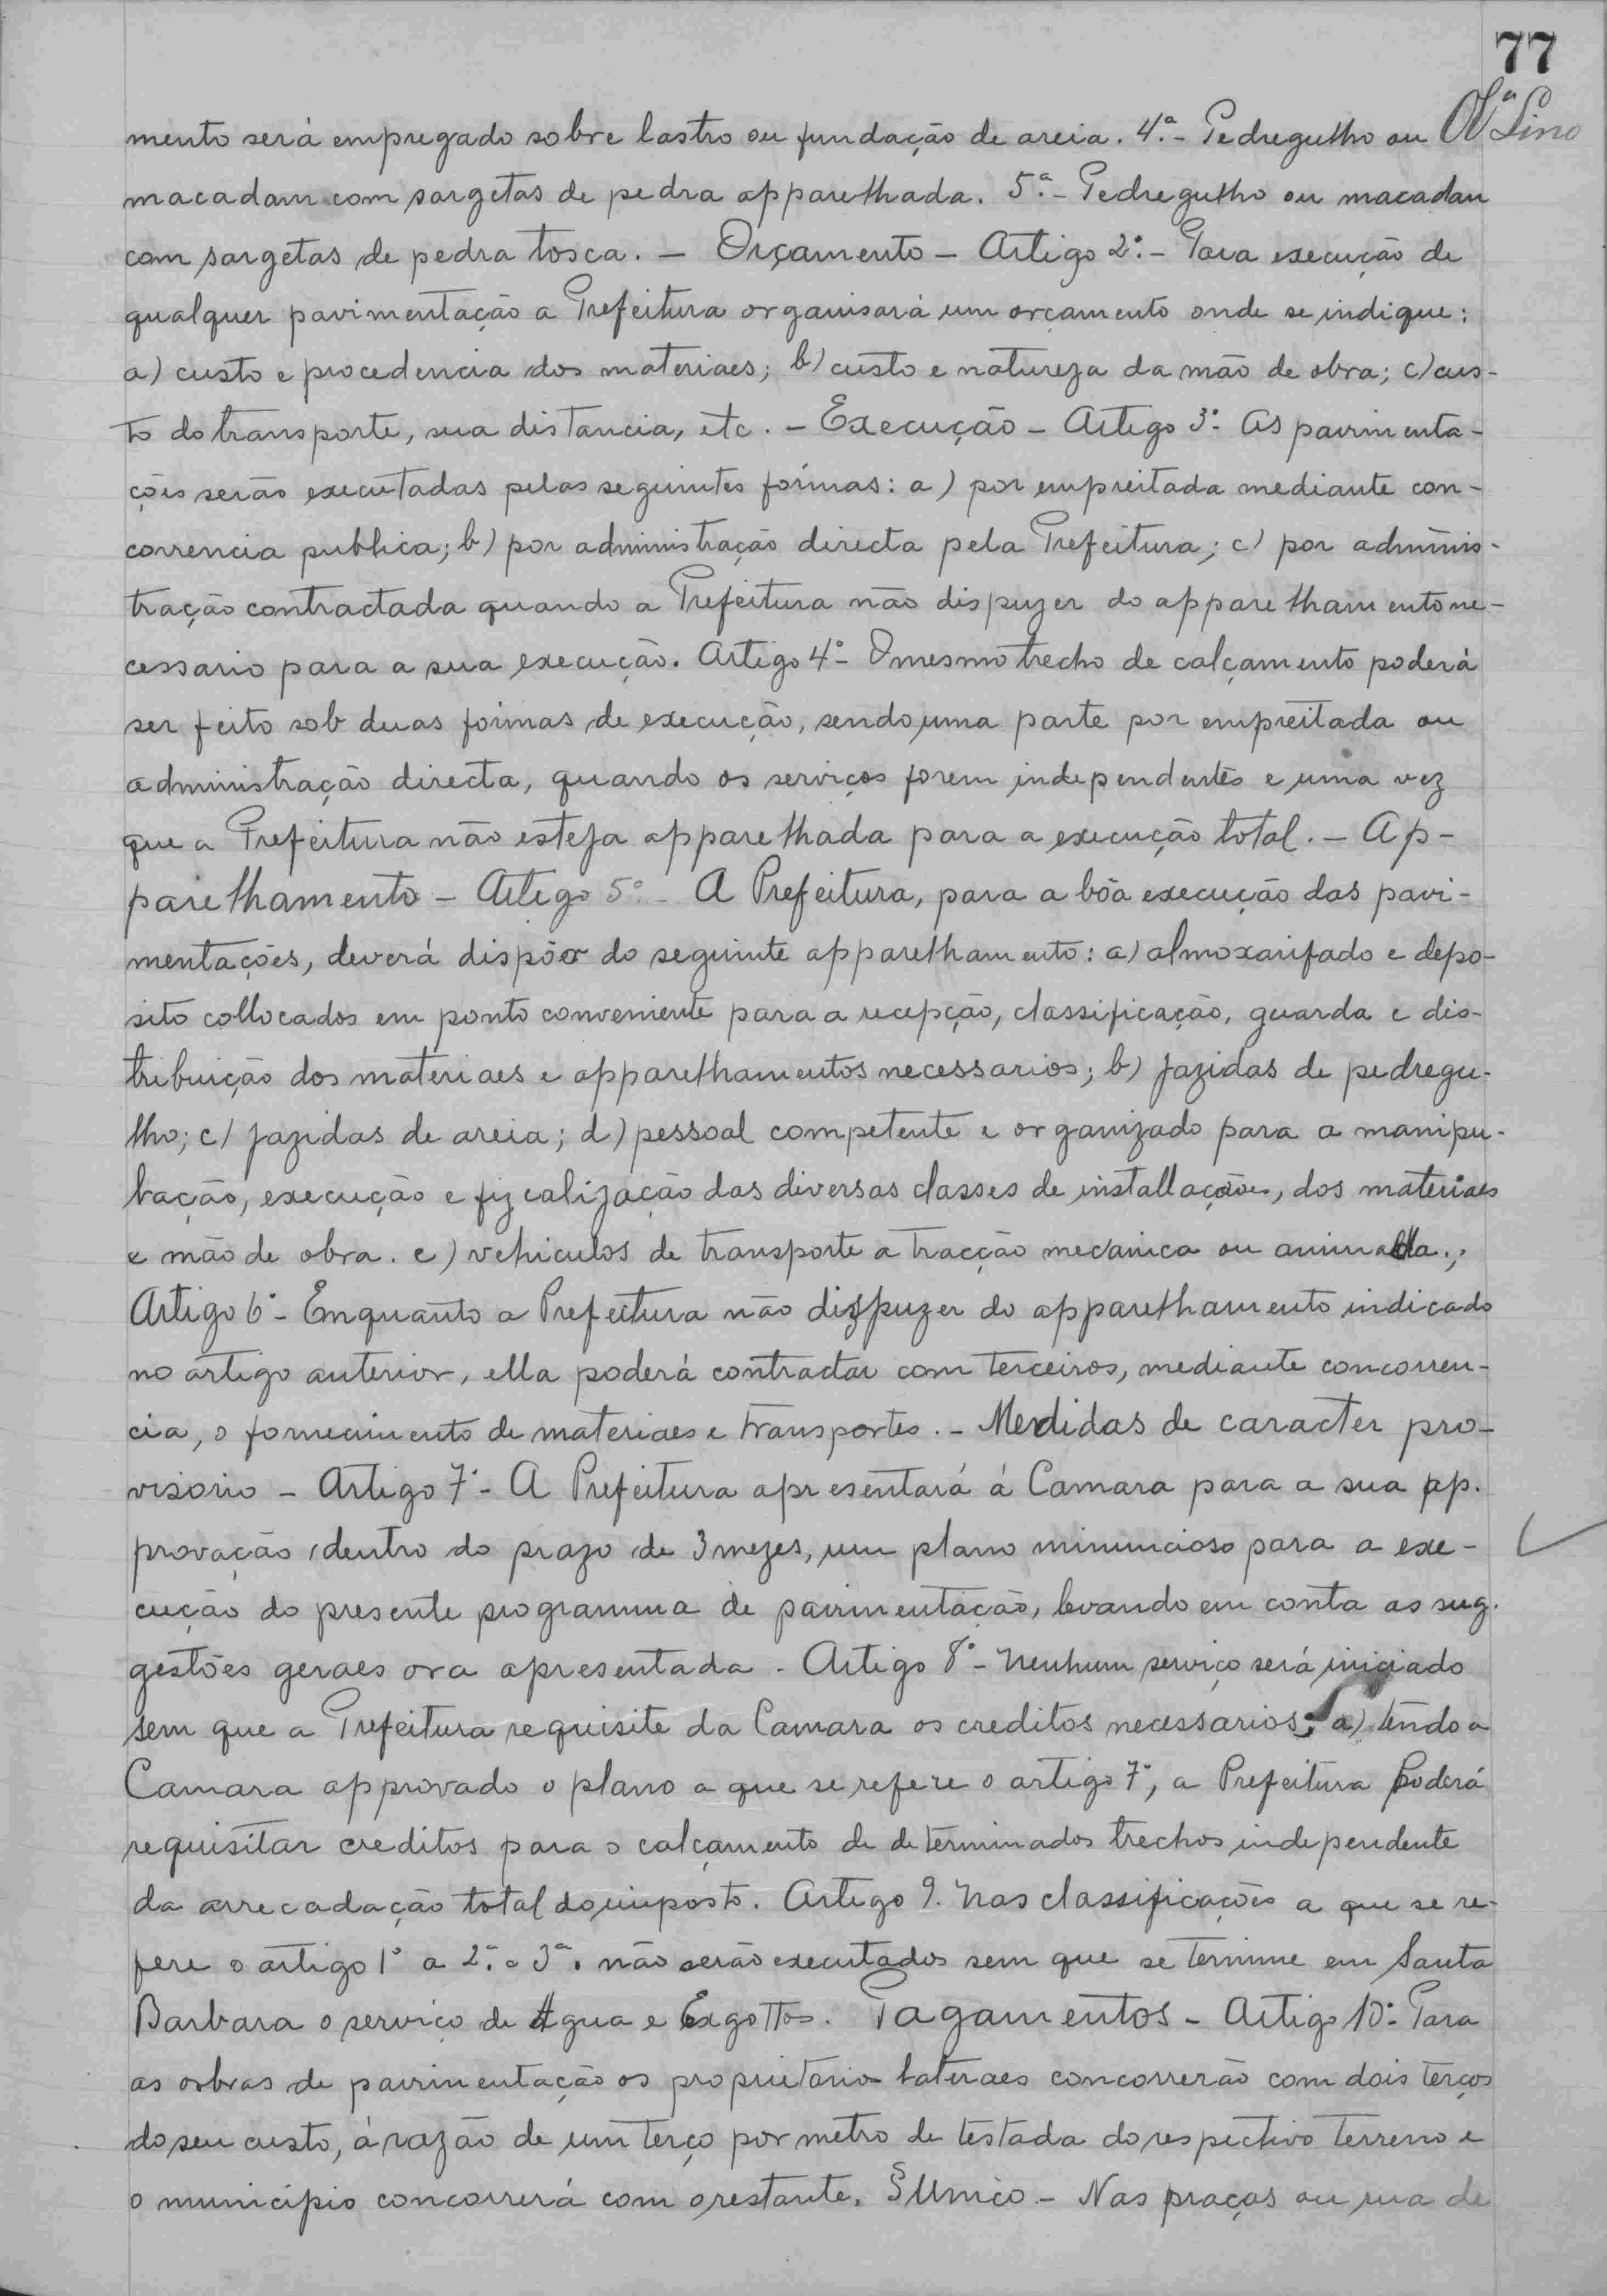 77
mento será empregado sobre lastro ou fundação de areia. 4.ª - Pedregulho ou
Lino
macadam com sargetas de pedra apparelhada. 5.ª - Pedregulho ou macadam
com sargetas de pedra tosca. - Orçamento - Artigo 2º. - Para execução de
qualquer pavimentação a Prefeitura organisará um orçamento onde se indique:
a) custo e procedencia dos materiaes; b) custo e natureza da mão de obra; c) cus-
to do transporte, sua distancia, etc. - Execução - Artigo 3º. As pavimenta-
ções serão executadas pelas seguintes fórmas: a) por empreitada mediante con-
correncia publica; b) por administração directa pela Prefeitura; c) por adminis-
tração contractada quando a Prefeitura não dispuzer do apparelhamento ne-
cessario para a sua execução. Artigo 4º - O mesmo trecho de calçamento poderá
ser feito sob duas fórmas de execução, sendo uma parte por empreitada ou
administração directa, quando os serviços forem independentes e uma vez
que a Prefeitura não esteja apparelhada para a execução total. - Ap-
parelhamento - Artigo 5º. - A Prefeitura, para a bôa execução das pavi-
mentações, deverá dispôr do seguinte apparelhamento: a) almoxarifado e depo-
sito collocados em ponto conveniente para a recepção, classificação, guarda e dis-
tribuição dos materiaes e apparelhamentos necessarios; b) jazidas de pedregu-
lho; c) jazidas de areia; d) pessoal competente e organizado para a manipu-
lação, execução e fizcalização das diversas classes de installações, dos materiaes
e mão de obra. e) vehiculos de transporte a tracção mecanica ou animada.;
Artigo 6º - Enquanto a Prefeitura não dispuzer do apparelhamento indicado
no artigo anterior, ella poderá contractar com terceiros, mediante concorren-
cia, o fornecimento de materiaes e transportes. - Medidas de caracter pro-
visorio - Artigo 7º - A Prefeitura apresentará á Camara para a sua ap-
provação dentro do prazo de 3 mezes, um plano minuncioso para a exe-
cução do presente programma de pavimentação, levando em conta as sug-
gestões geraes ora apresentada - Artigo 8º - Nenhum serviço será iniciado
sem que a Prefeitura requisite da Camara os creditos necessarios; a) tendo a
Camara approvado o plano a que se refere o artigo 7º, a Prefeitura poderá
requisitar creditos para o calçamento de determinados trechos independente
da arrecadação total do imposto. Artigo 9. Nas classificações a que se re-
fere o artigo 1º a 2.ª e 3ª. não serão executados sem que se termine em Santa
Barbara o serviço de Agua e Exgottos. Pagamentos - Artigo 10º. Para
as obras de pavimentação os proprietarios lateraes concorrerão com dois terços
do seu custo, á razão de um terço por metro de testada do respectivo terreno e
o municipio concorrerá com o restante. § Unico - Nas praças ou rua de